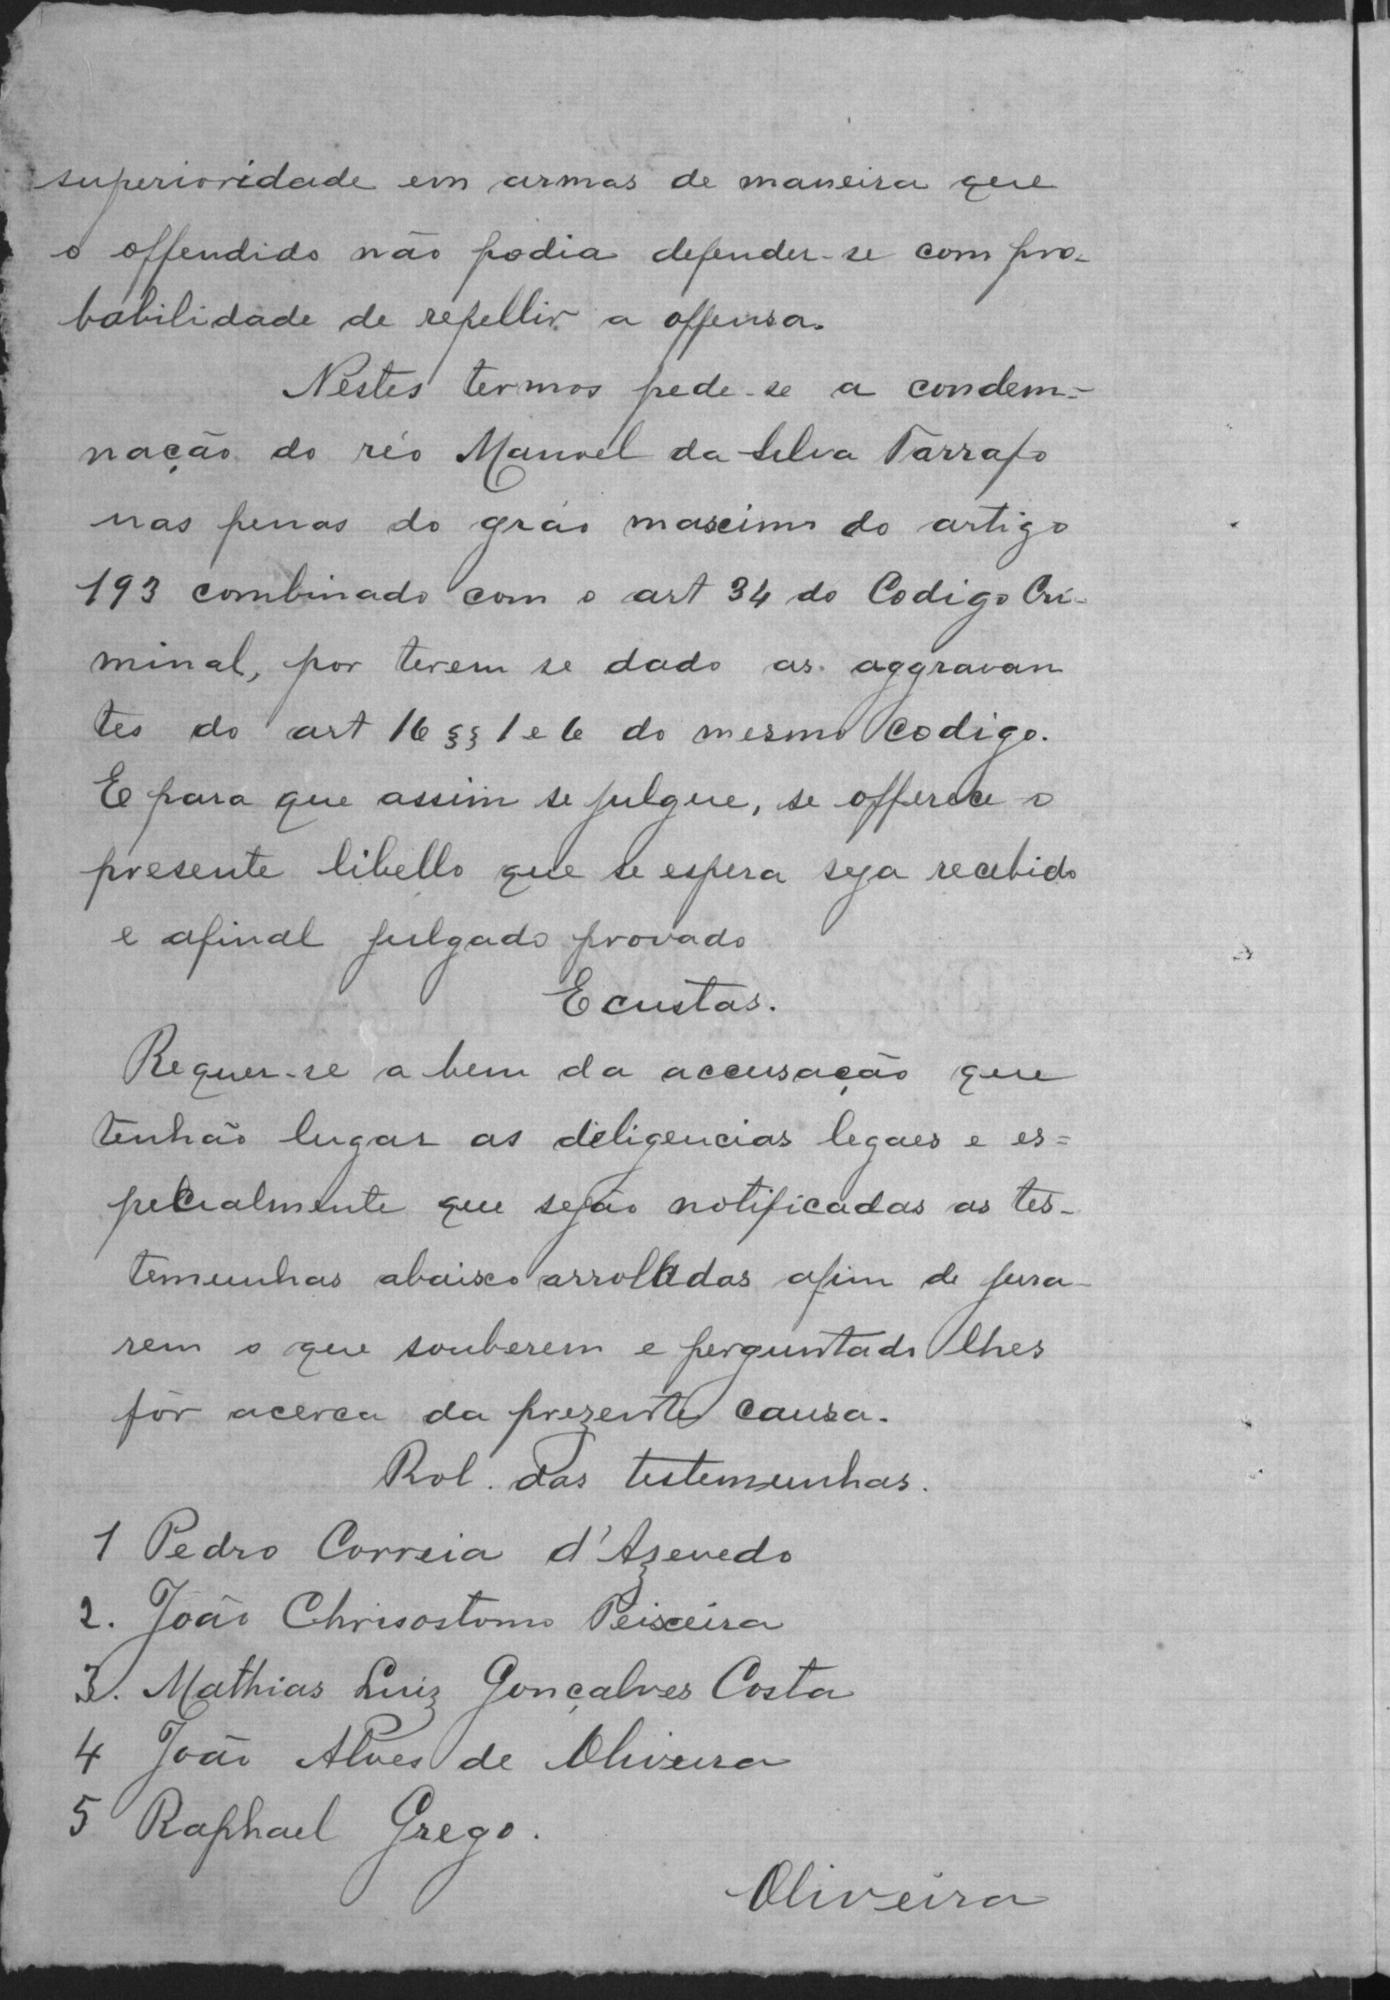 superioridade em armas de maneira que
o offendido não podia defender-se com pro-
babilidade de repellir a offensa.
Nestes termos pede-se a condem=
nação do réo Manoel da Silva Tarrafo
nas penas do gráo maximo do artigo
193 combinado com o art 34 do Codigo Cri-
minal, por terem se dado as aggravan
tes do art 16 §§ 1 e 6 do mesmo codigo.
E para que assim se julgue, se offerece o
presente libello que se espera seja recebido
e afinal julgado provado
E custas.
Requer-se a bem da accusação que
tenhão lugar as diligencias legaes e es=
pecialmente que sejão notificadas as tes-
temunhas abaixo arroladas afim de jura-
rem o que souberem e perguntado lhes
fôr acerca da prezente causa.
Rol das testemunhas.
1 Pedro Correia d'Azevedo
2. João Chrisostomo Peixeira
3. Mathias Luiz Gonçalves Costa
4 João Alves de Oliveira
5 Raphael Grego.
Oliveira